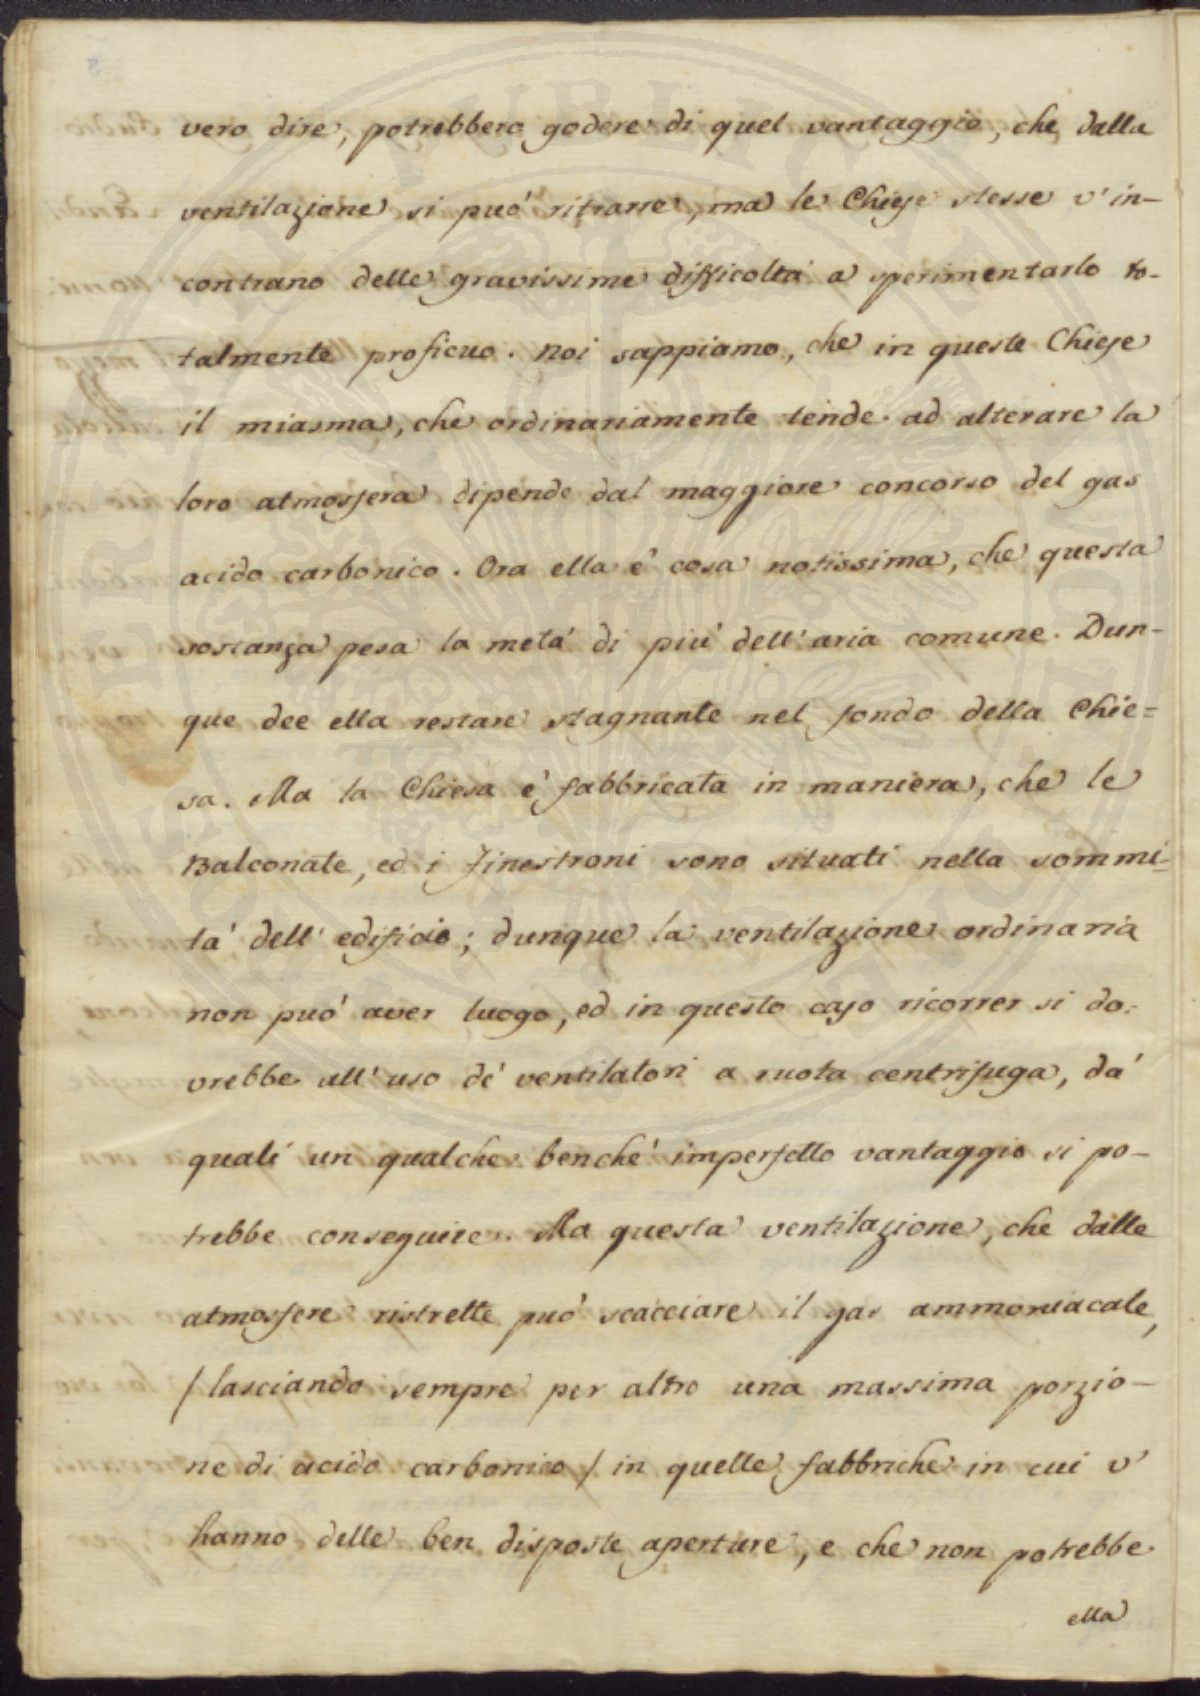 vero dire, potrebbero godere di quel vantaggio, che dalla
ventilazione si può ritrarre, ma le Chiese stesse v'in-
contrano delle gravissime difficoltà a sperimentarlo to-
talmente proficuo. Noi sappiamo, che in queste Chiese
il miasma, che ordinariamente tende ad alterare la
loro atmosfera dipende dal maggiore concorso del gas
acido carbonico. Ora ella è cosa notissima, che questa
sostanza pesa la metà di più dell'aria comune. Dun-
que dee ella restare stagnante nel fondo della Chie=
sa. Ma la Chiesa è fabbricata in maniera, che le
Balconate, ed i Finestroni sono situati nella sommi-
tà dell' edificio; dunque la ventilazione ordinaria
non può aver luogo, ed in questo caso ricorrer si do-
vrebbe all'uso dé ventilatori a ruota centrifuga, dá
quali un qualche benché imperfetto vantaggio si po-
trebbe conseguire. Ma questa ventilazione, che dalle
atmosfere ristrette può scacciare il gas ammoniacale,
/ lasciando sempre per altro una massima porzio-
ne di acido carbonico / in quelle fabbriche in cui v'
hanno delle ben disposte aperture, e che non potrebbe
ella